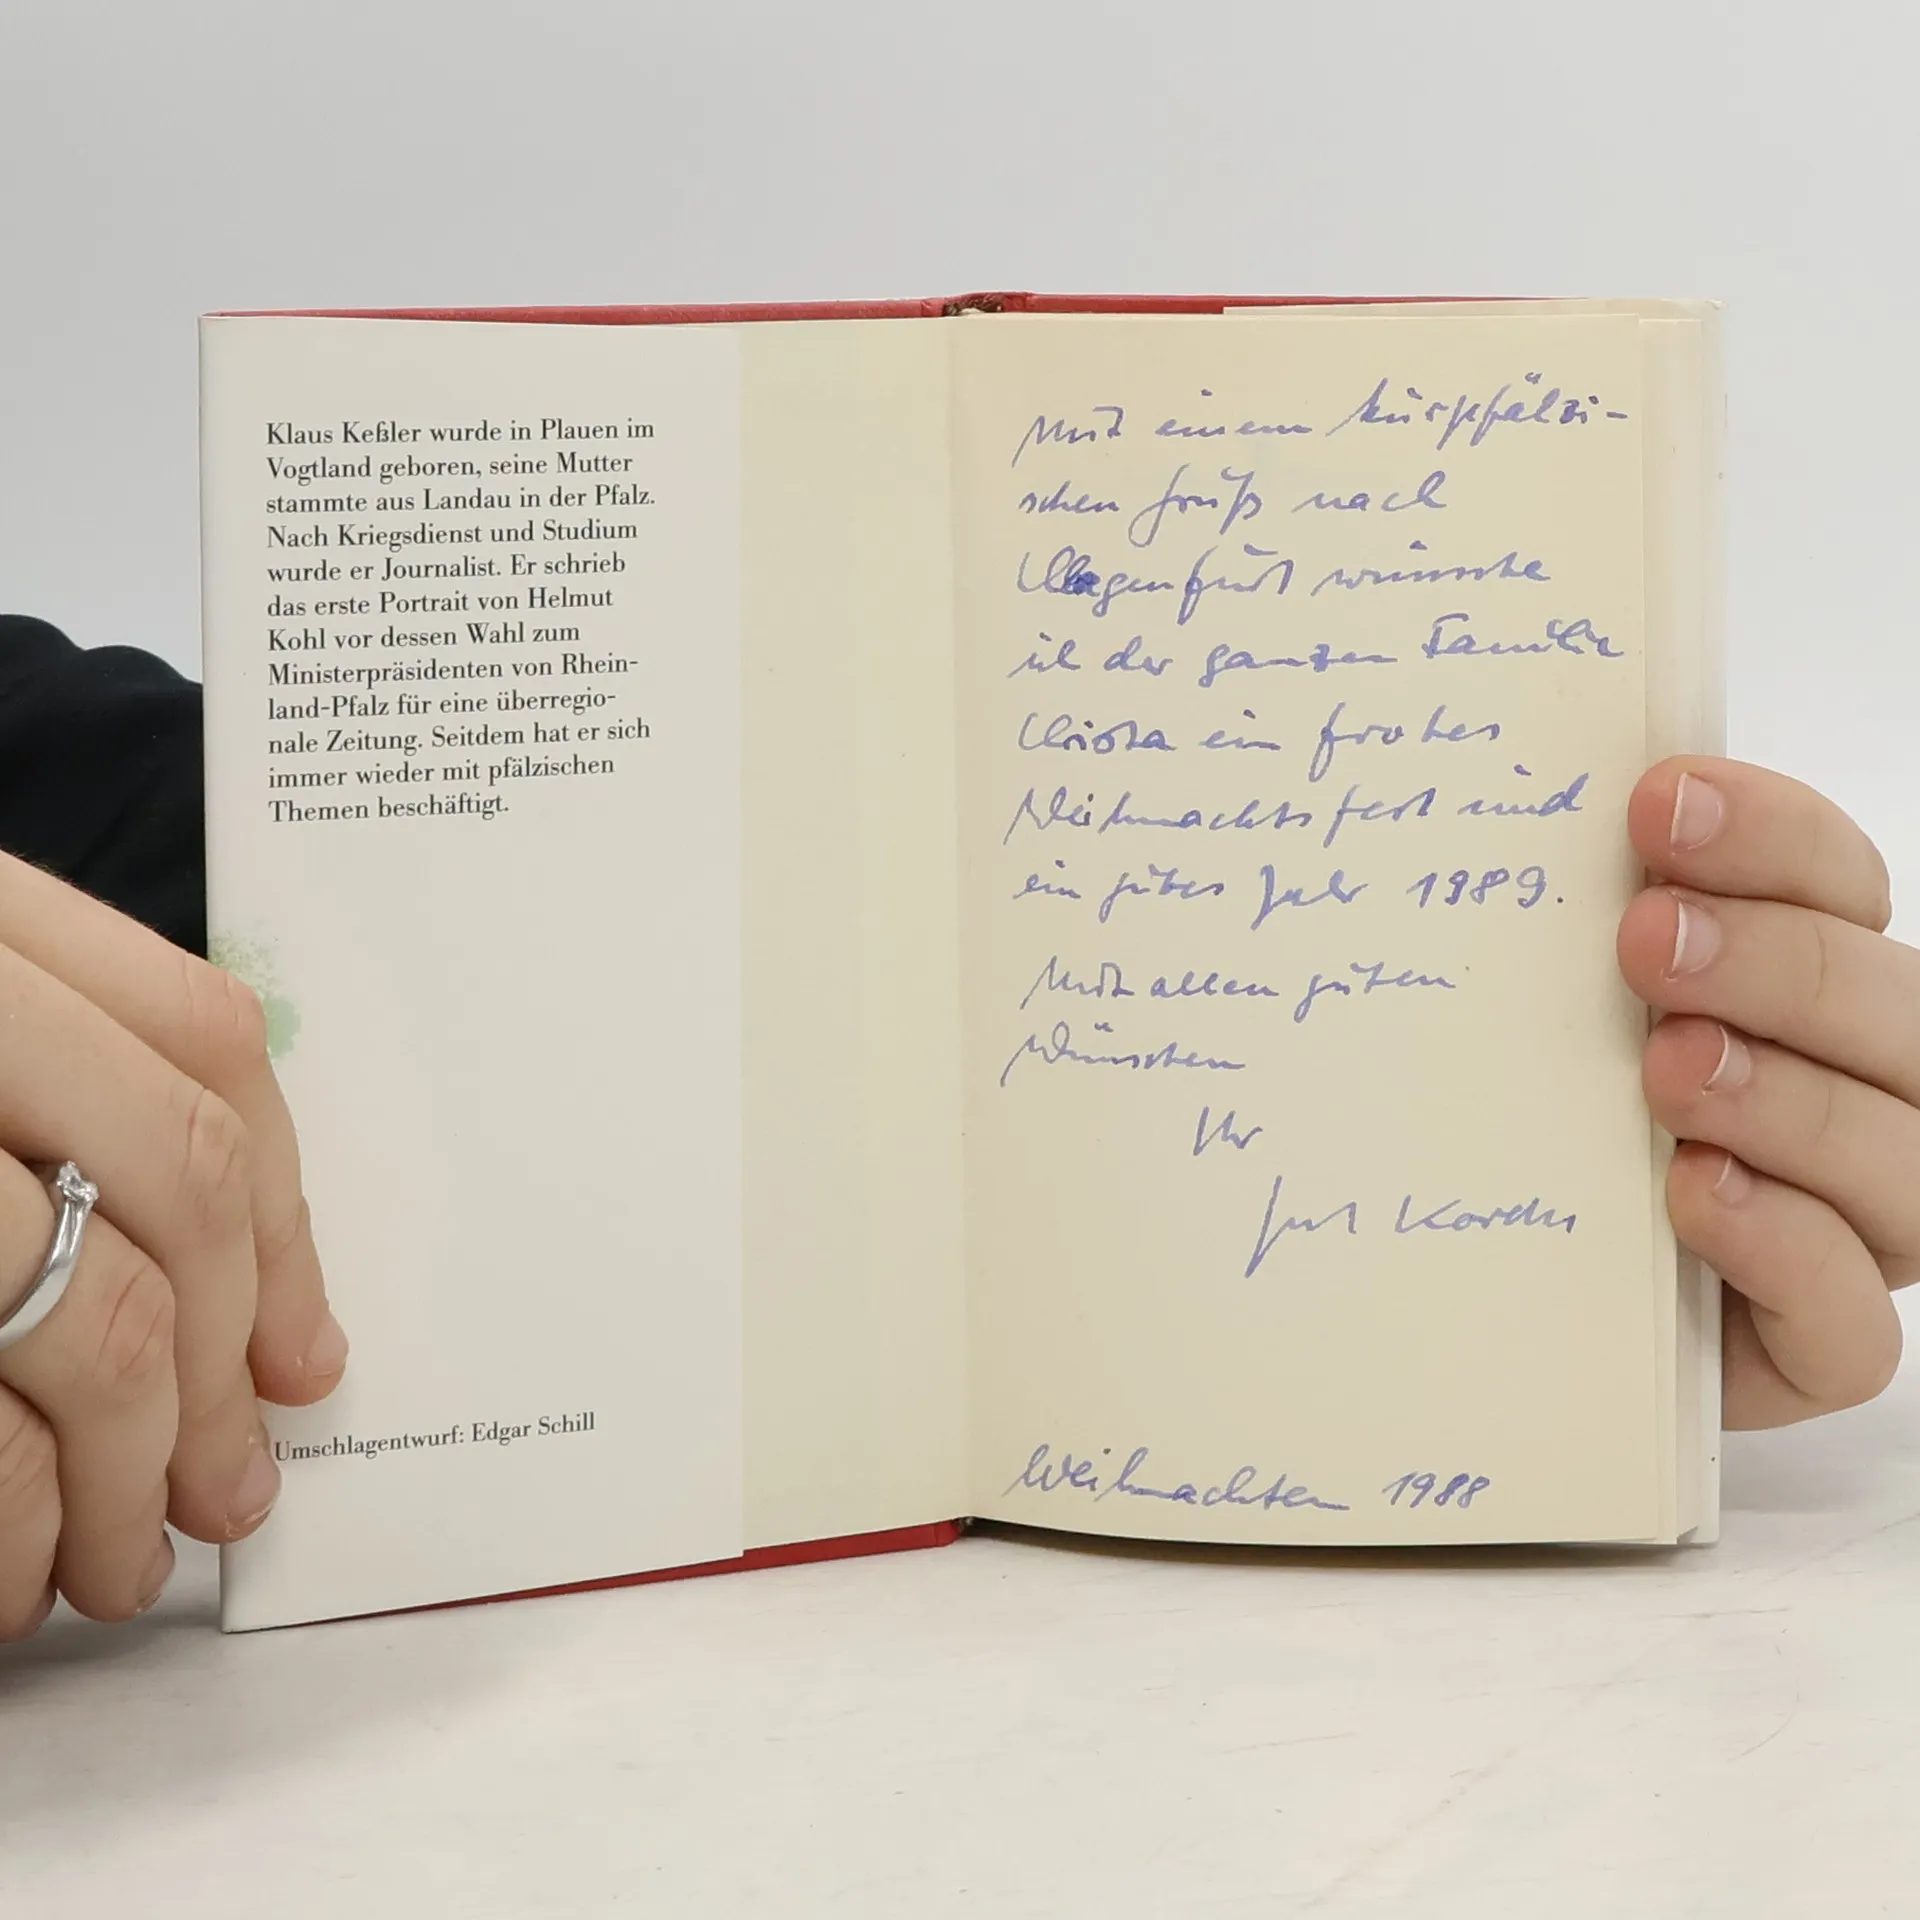 Klaus Keßler wurde in Plauen im
Vogtland geboren, seine Mutter
stammte aus Landau in der Pfalz.
Nach Kriegsdienst und Studium
wurde er Journalist. Er schrieb
das erste Portrait von Helmut
Kohl vor dessen Wahl zum
Ministerpräsidenten von Rhein-
land-Pfalz für eine überregio-
nale Zeitung. Seitdem hat er sich
immer wieder mit pfälzischen
Themen beschäftigt.
Umschlagentwurf: Edgar Schill
Mit einem kurpfälzi-
schen Gruß nach
Klagenfurt wünsche
ich der ganzen Familie
ein frohes
Weihnachtsfest und
ein gutes Jahr 1989.
Mit allen guten
Wünschen
Ihr
Weihnachten 1988